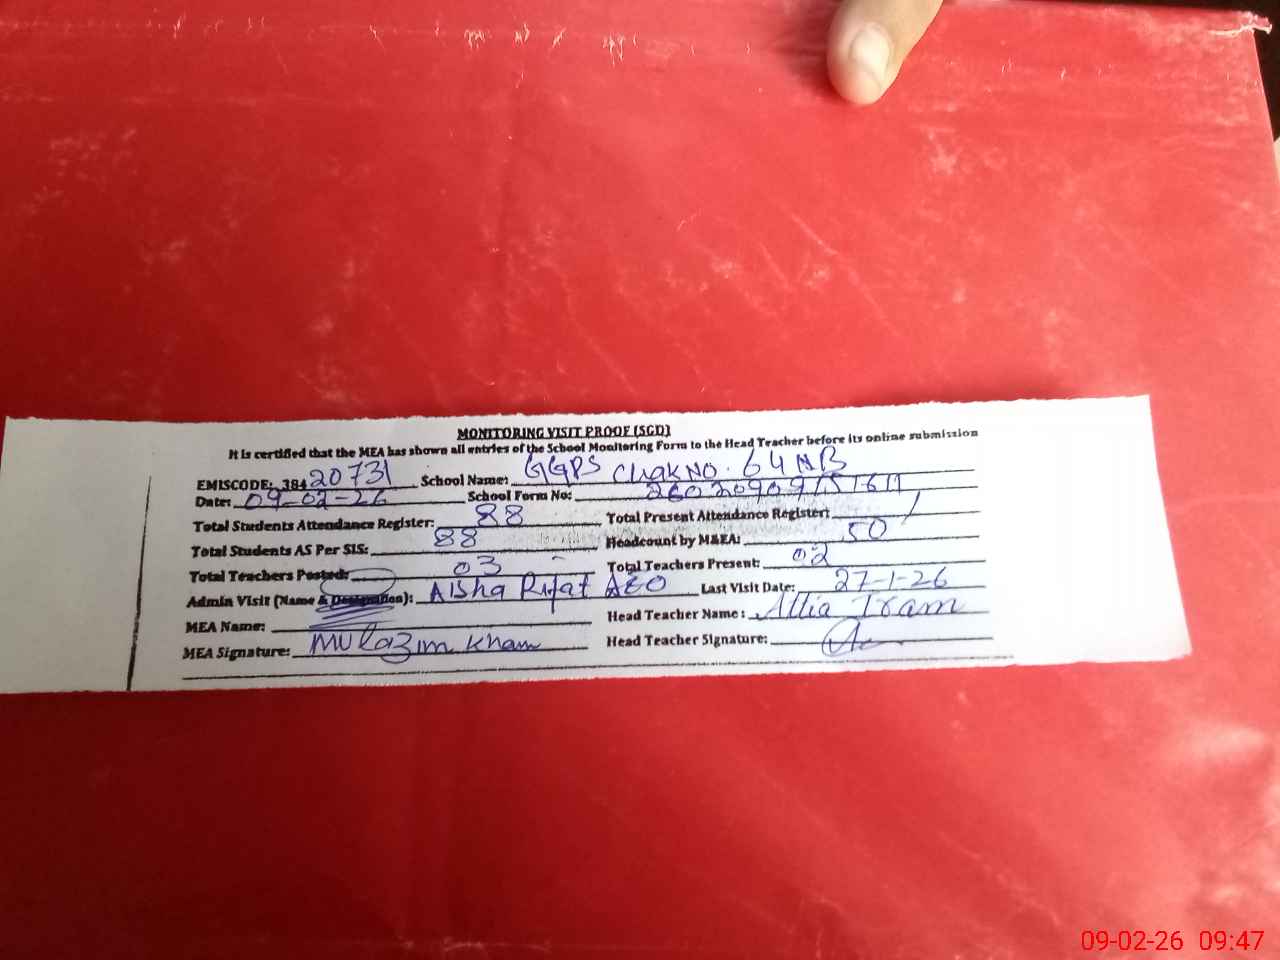 MONITORING VISIT PROOF (SGD)
It is certified that the MEA has shown all entries of the School Monitoring Form to the Head Teacher before its online submission
EMISCODE: 38420731 School Name: GGPS Chak No. 64 NB
Date: 09-02-26 School Form No:
Total Students Attendance Register: 88 Total Present Attendance Register: /
Total Students AS Per SIS: 88 Headcount by M&EA: 50
Total Teachers Posted: 03 Total Teachers Present: 02
Admin Visit (Name & Designation): Aisha Rifat AEO Last Visit Date: 27-1-26
MEA Name: Head Teacher Name:
MEA Signature: Mulazim Khan Head Teacher Signature:
09-02-26 09:47